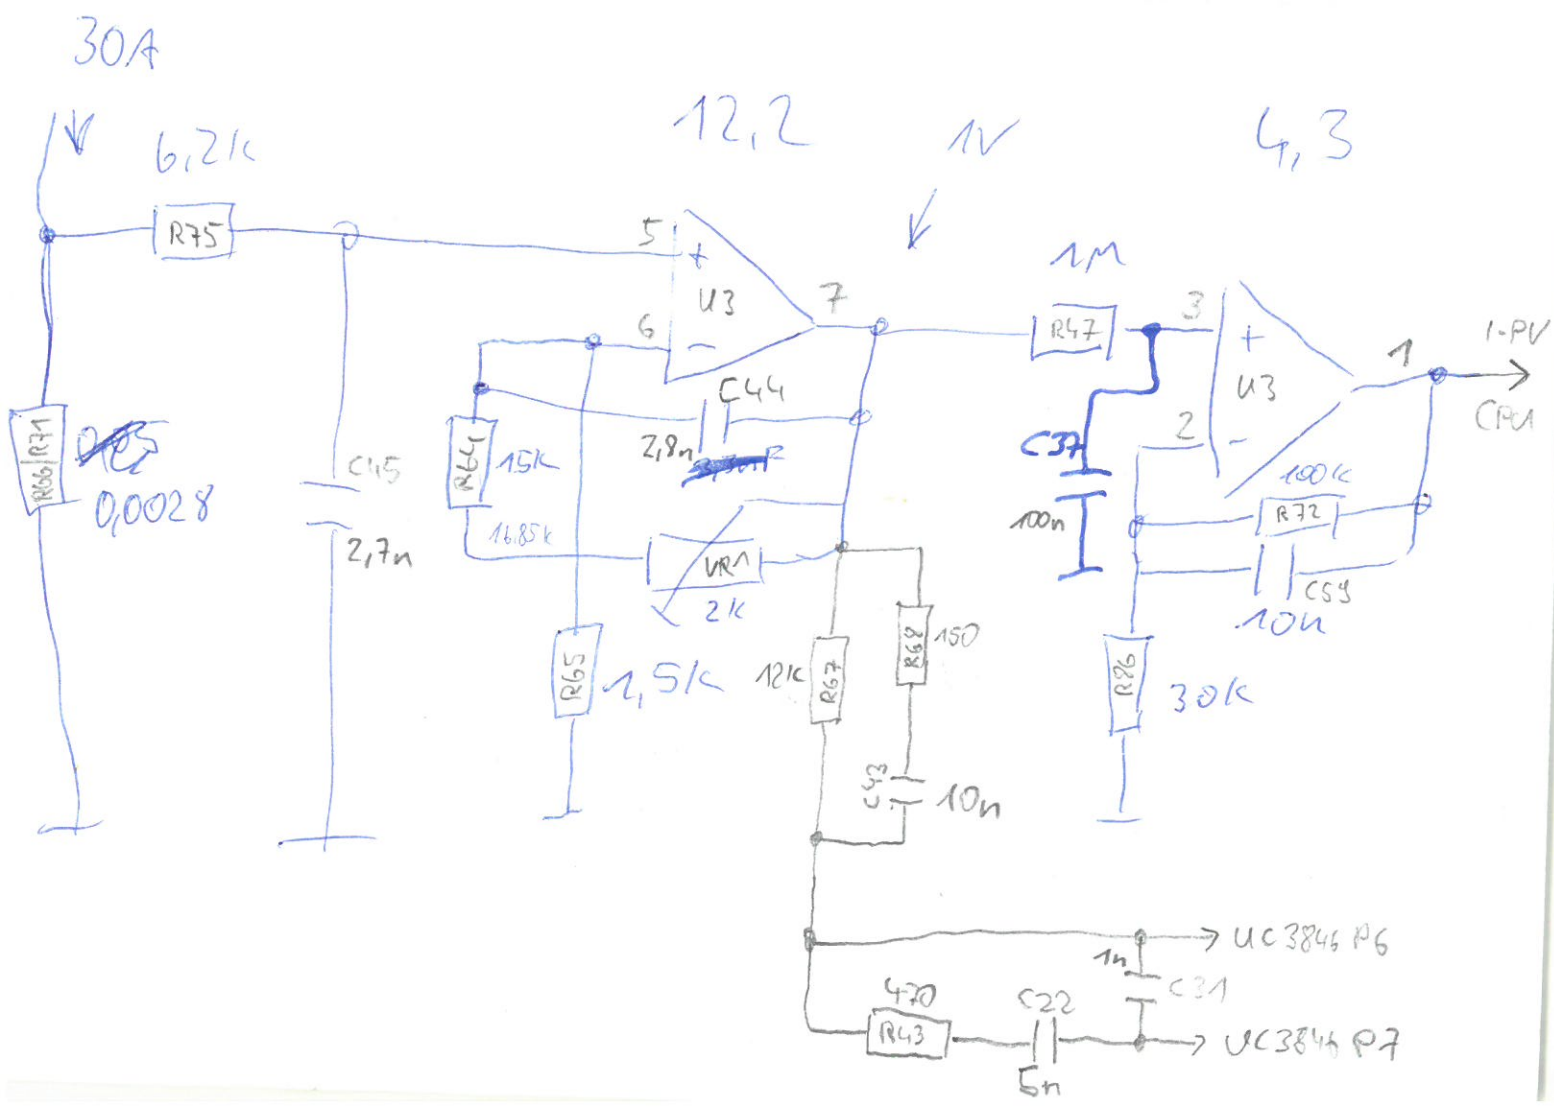 30A
6,2k
12,2
1V
4,3
R75
5
+
U3
7
6
-
1M
R47
3
+
U3
1
I-PV
CPU
2
-
R66/R71
0,0028
C45
2,7n
R64
15k
C44
2,8n
16,85k
VR1
2k
C37
100n
100k
R72
C59
10n
R65
1,5k
12k
R67
R68
150
C43
10n
R86
30k
UC3846 P6
1n
C31
470
R43
C22
5n
UC3846 P7